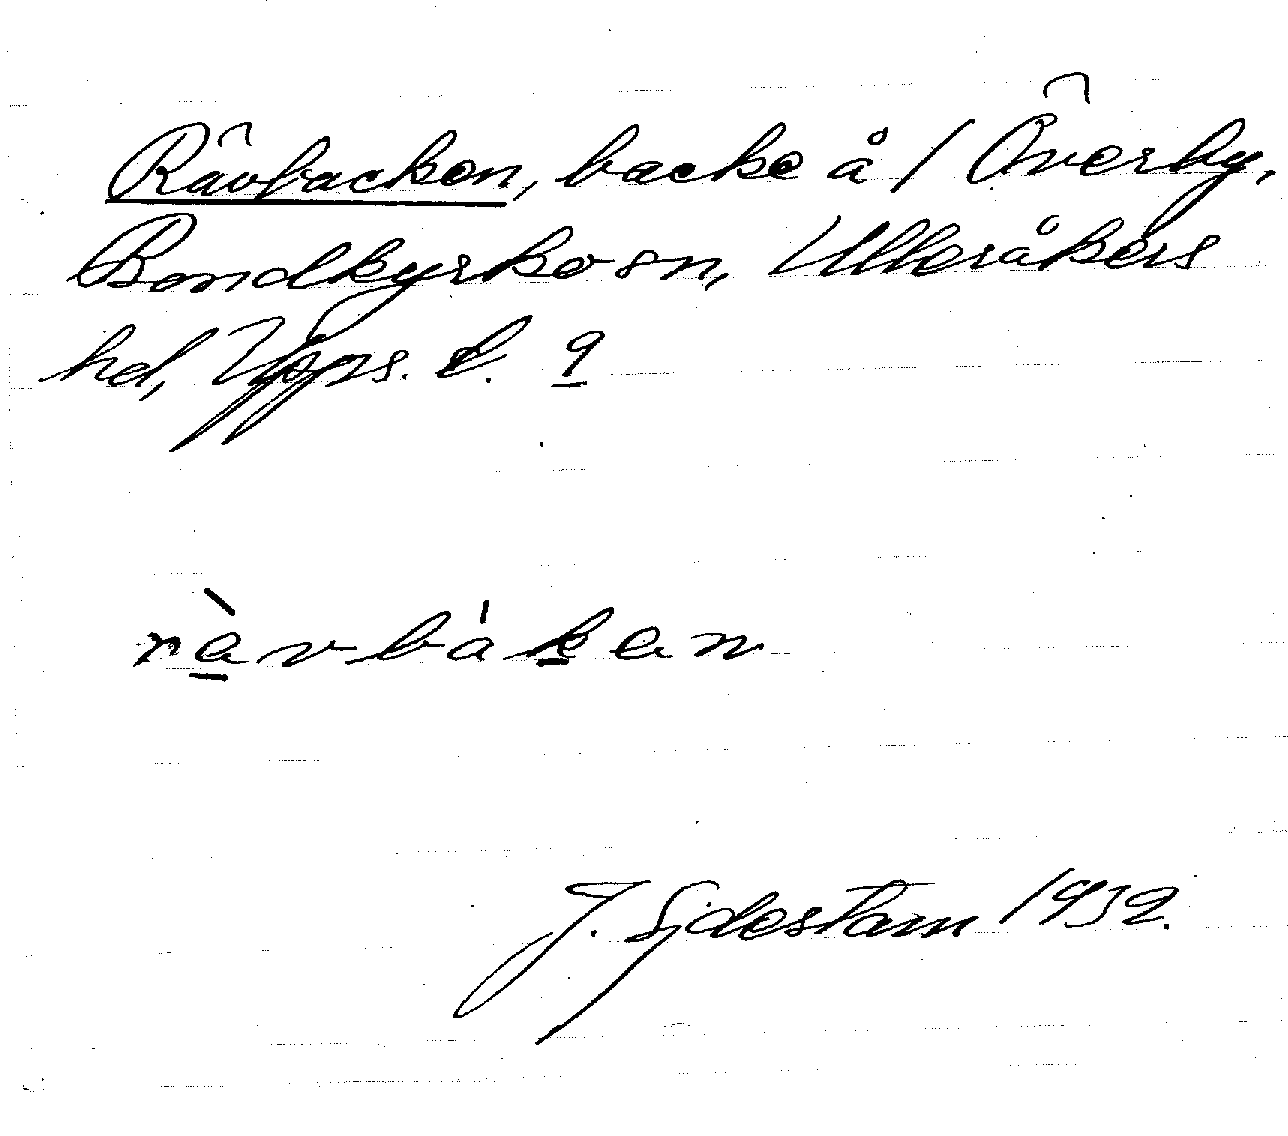 Rävbacken, backe å / Överby,
Bondkyrko sn, Ulleråkers
hd, Upps. l. 9
ràvbákan
J. Sjdestam 1932.